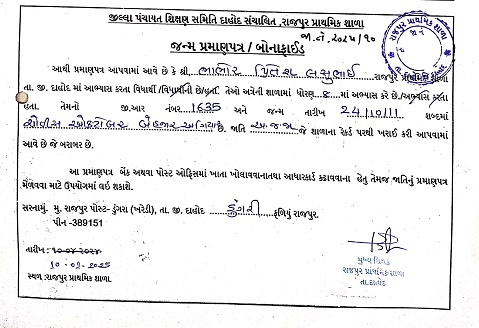 જીલ્લા પંચાયત શિક્ષણ સમિતિ દાહોદ સંચાલિત, રાજપુર પ્રાથમિક શાળા
જા.નં. ૨૦૨૫/૧૦
જન્મ પ્રમાણપત્ર / બોનાફાઈડ
આથી પ્રમાણપત્ર આપવામાં આવે છે કે શ્રી ભાભોર પ્રિતેશ લસુભાઈ રાજપુર પ્રાથમિક શાળા
તા.જી. દાહોદ માં આભ્યાસ કરતા વિધાર્થી/વિધાર્થીની છે/હતા. તેઓ અત્રેની શાળામાં ધોરણ ૮ માં અભ્યાસ કરે છે./અભ્યાસ કરતા
હતા. તેમનો જી.આર નંબર 1635 અને જન્મ તારીખ 24/10/11 શબ્દમાં
ચોવીસ ઓક્ટોબર બેહજાર અગિયાર છે. જાતિ અ.જ.જા જે શાળાના રેકર્ડ પરથી ખરાઈ કરી આપવામાં
આવે છે જે બરાબર છે.
આ પ્રમાણપત્ર બેંક અથવા પોસ્ટ ઓફિસમાં ખાતા ખોલાવવાનાતથા આધારકાર્ડ કઢાવવાના હેતુ તેમજ જાતિનું પ્રમાણપત્ર
મેળવવા માટે ઉપયોગમાં લઇ શકાશે.
સરનામું. મુ. રાજપુર પોસ્ટ- ડુંગરા (ખરેડી), તા. જી. દાહોદ ડુંગરી ફળિયું રાજપુર.
પીન -389151
તારીખ : ૧૦-૦૪-૨૦૨૪
૧૦-૦૧-૨૦૨૫
સ્થળ :રાજપુર પ્રાથમિક શાળા.
મુખ્ય શિક્ષક
રાજપુર પ્રાથમિક શાળા
તા.દાહોદ